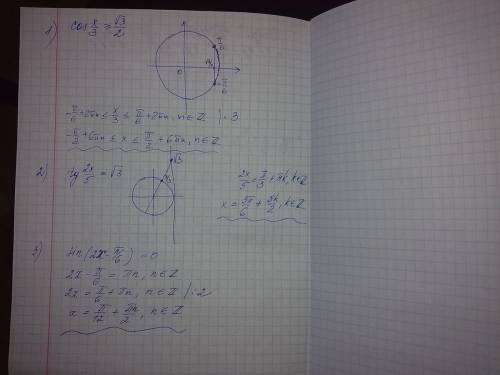 1) cos x/3 ≥ √3/2
π/6
0
-π/6
-π/6 + 2πn ≤ x/3 ≤ π/6 + 2πn, n∈Z | · 3
-π/2 + 6πn ≤ x ≤ π/2 + 6πn, n∈Z
2) tg 2x/5 = √3
√3
2x/5 = π/3 + πk, k∈Z
x = 5π/6 + 5k/2, k∈Z
3) sin(2x - π/6) = 0
2x - π/6 = πn, n∈Z
2x = π/6 + πn, n∈Z /:2
x = π/12 + πn/2, n∈Z